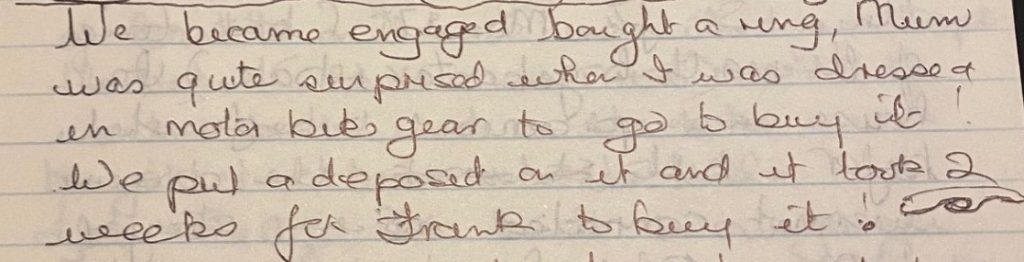 We became engaged bought a ring, Mum
was quite surprised when I was dressed
in motor bike gear to go to buy it!
We put a deposed on it and it took 2
weeks for Frank to buy it!